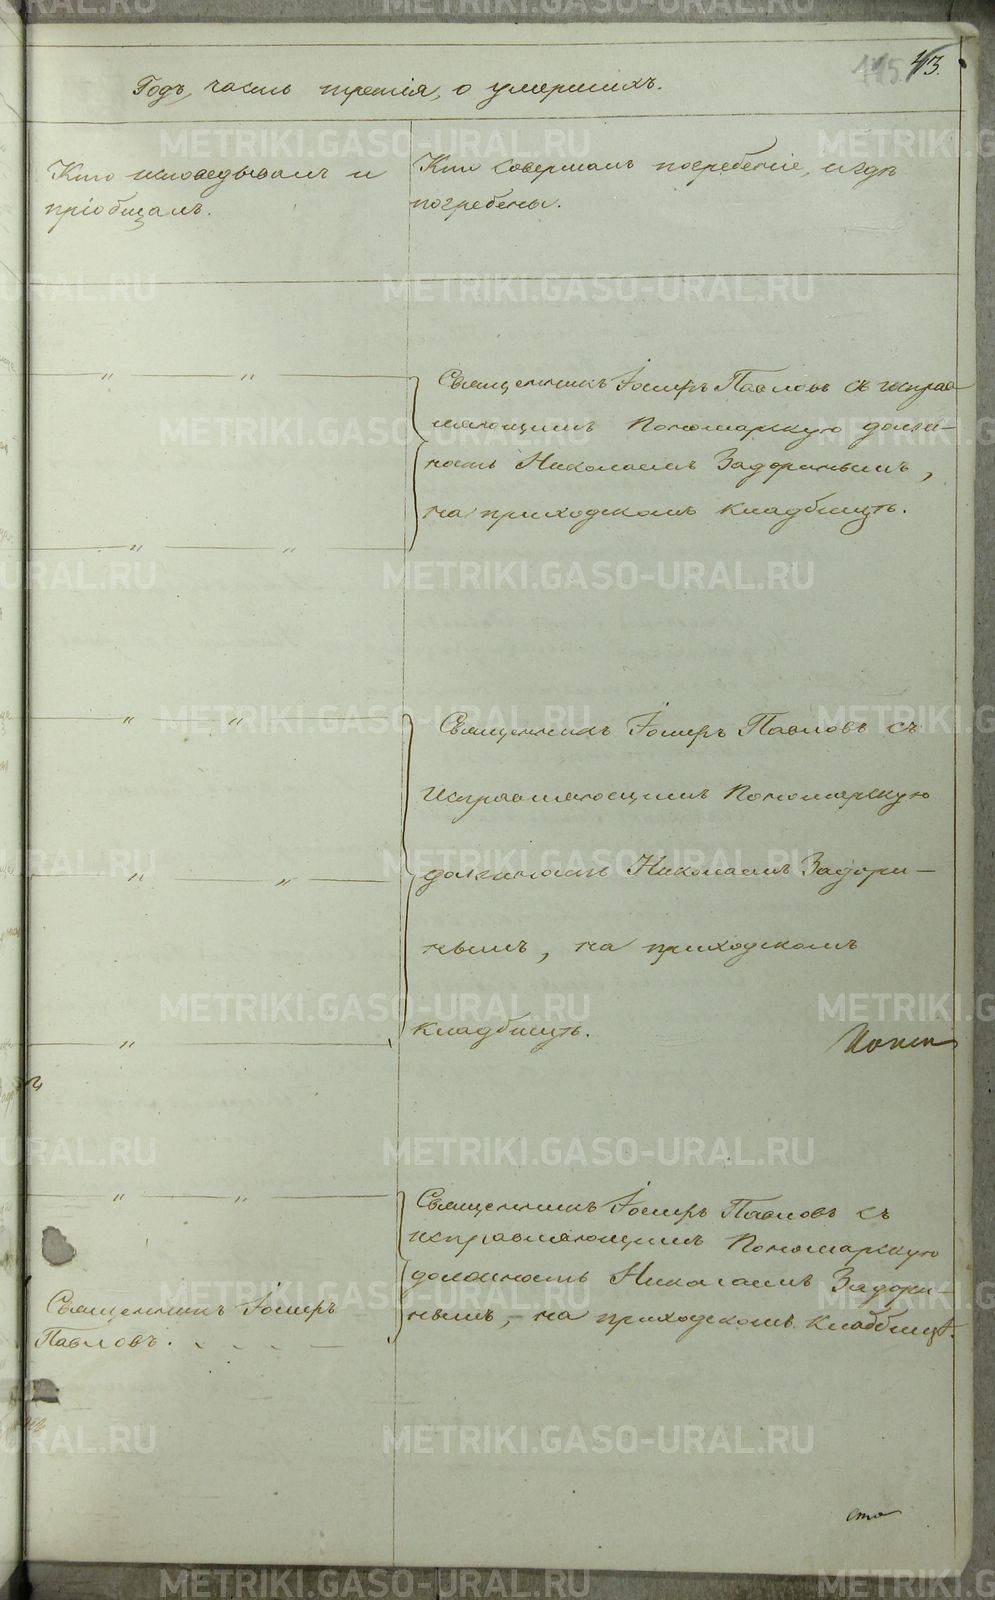 115. 43.
Годъ, часть третія, о умершихъ.
Кто исповедывалъ и
пріобщалъ.
Кто совершалъ погребеніе, и гдѣ
погребены.
Священникъ Іосифъ Павловъ съ исправ
ляющимъ Пономарскую долж-
ность Николаемъ Задоринымъ,
на приходскомъ кладбищѣ.
Священникъ Іосифъ Павловъ съ
исправляющимъ Пономарскую
должность Николаемъ Задори-
нымъ, на приходскомъ
кладбищѣ.
Священникъ Іосифъ Павловъ съ
исправляющимъ Пономарскую
должность Николаемъ Задори-
нымъ, - на приходскомъ кладбищѣ.
Священникъ Іосифъ
Павловъ.
сто
METRIKI.GASO-URAL.RU